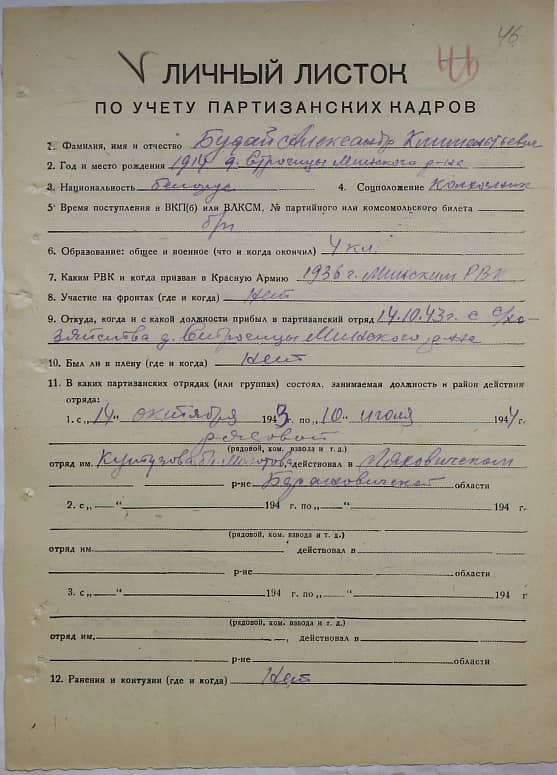 46
46
V ЛИЧНЫЙ ЛИСТОК
ПО УЧЕТУ ПАРТИЗАНСКИХ КАДРОВ
1. Фамилия, имя и отчество Будай Александр Климентьевич
2. Год и место рождения 1914 д. Строчицы Минского р-на
3. Национальность белорус 4. Соцположение колхозник
5 Время поступления в ВКП(б) или ВЛКСМ, № партийного или комсомольского билета
б/п
6. Образование: общее и военное (что и когда окончил) 4 кл.
7. Каким РВК и когда призван в Красную Армию 1936 г. Минским РВК
8. Участие на фронтах (где и когда) Нет
9. Откуда, когда и с какой должности прибыл в партизанский отряд 14.10.43 г. с с/хо-
зяйства д. Строчицы Минского р-на
10. Был ли в плену (где и когда) Нет
11. В каких партизанских отрядах (или группах) состоял, занимаемая должность и район действия
отряда:
1. с „14“ октября 1943 г. по „10“ июля 1944 г.
рядовой
(рядовой, ком. взвода и т. д.)
отряд им. Кутузова бр. Молотова, действовал в Ляховичском
р-не Барановичской области
2. с „ “ 194 г. по „ “ 194 г.
(рядовой, ком. взвода и т. д.)
отряд им. действовал в
р-не области
3. с „ “ 194 г. по „ “ 194 г
(рядовой, ком. взвода и т. д.)
отряд им. , действовал в
р-не области
12. Ранения и контузии (где и когда) Нет